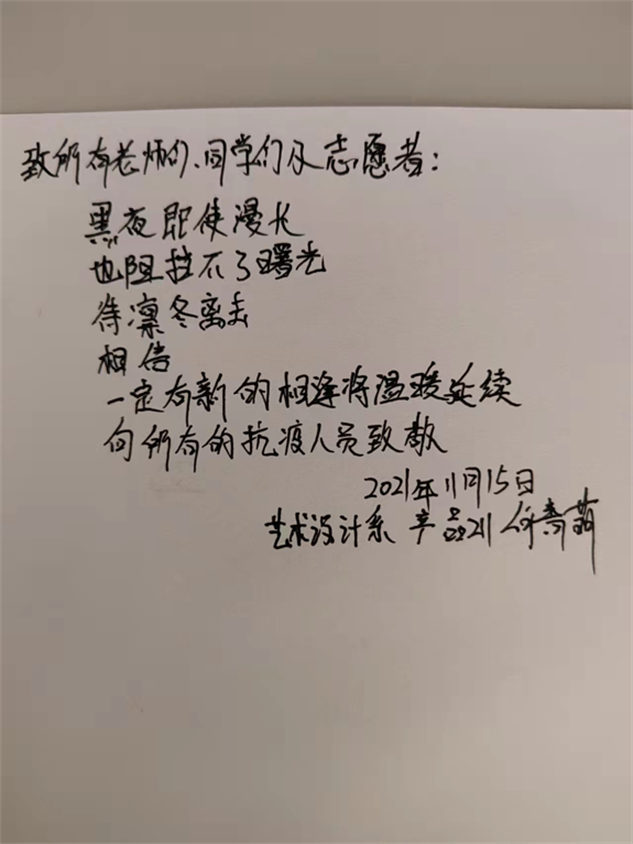 致所有老师们、同学们及志愿者：
黑夜即使漫长
也阻挡不了曙光
待凛冬离去
相信
一定有新的相逢将温暖延续
向所有的抗疫人员致敬
2021年11月15日
艺术设计系 产品211 何